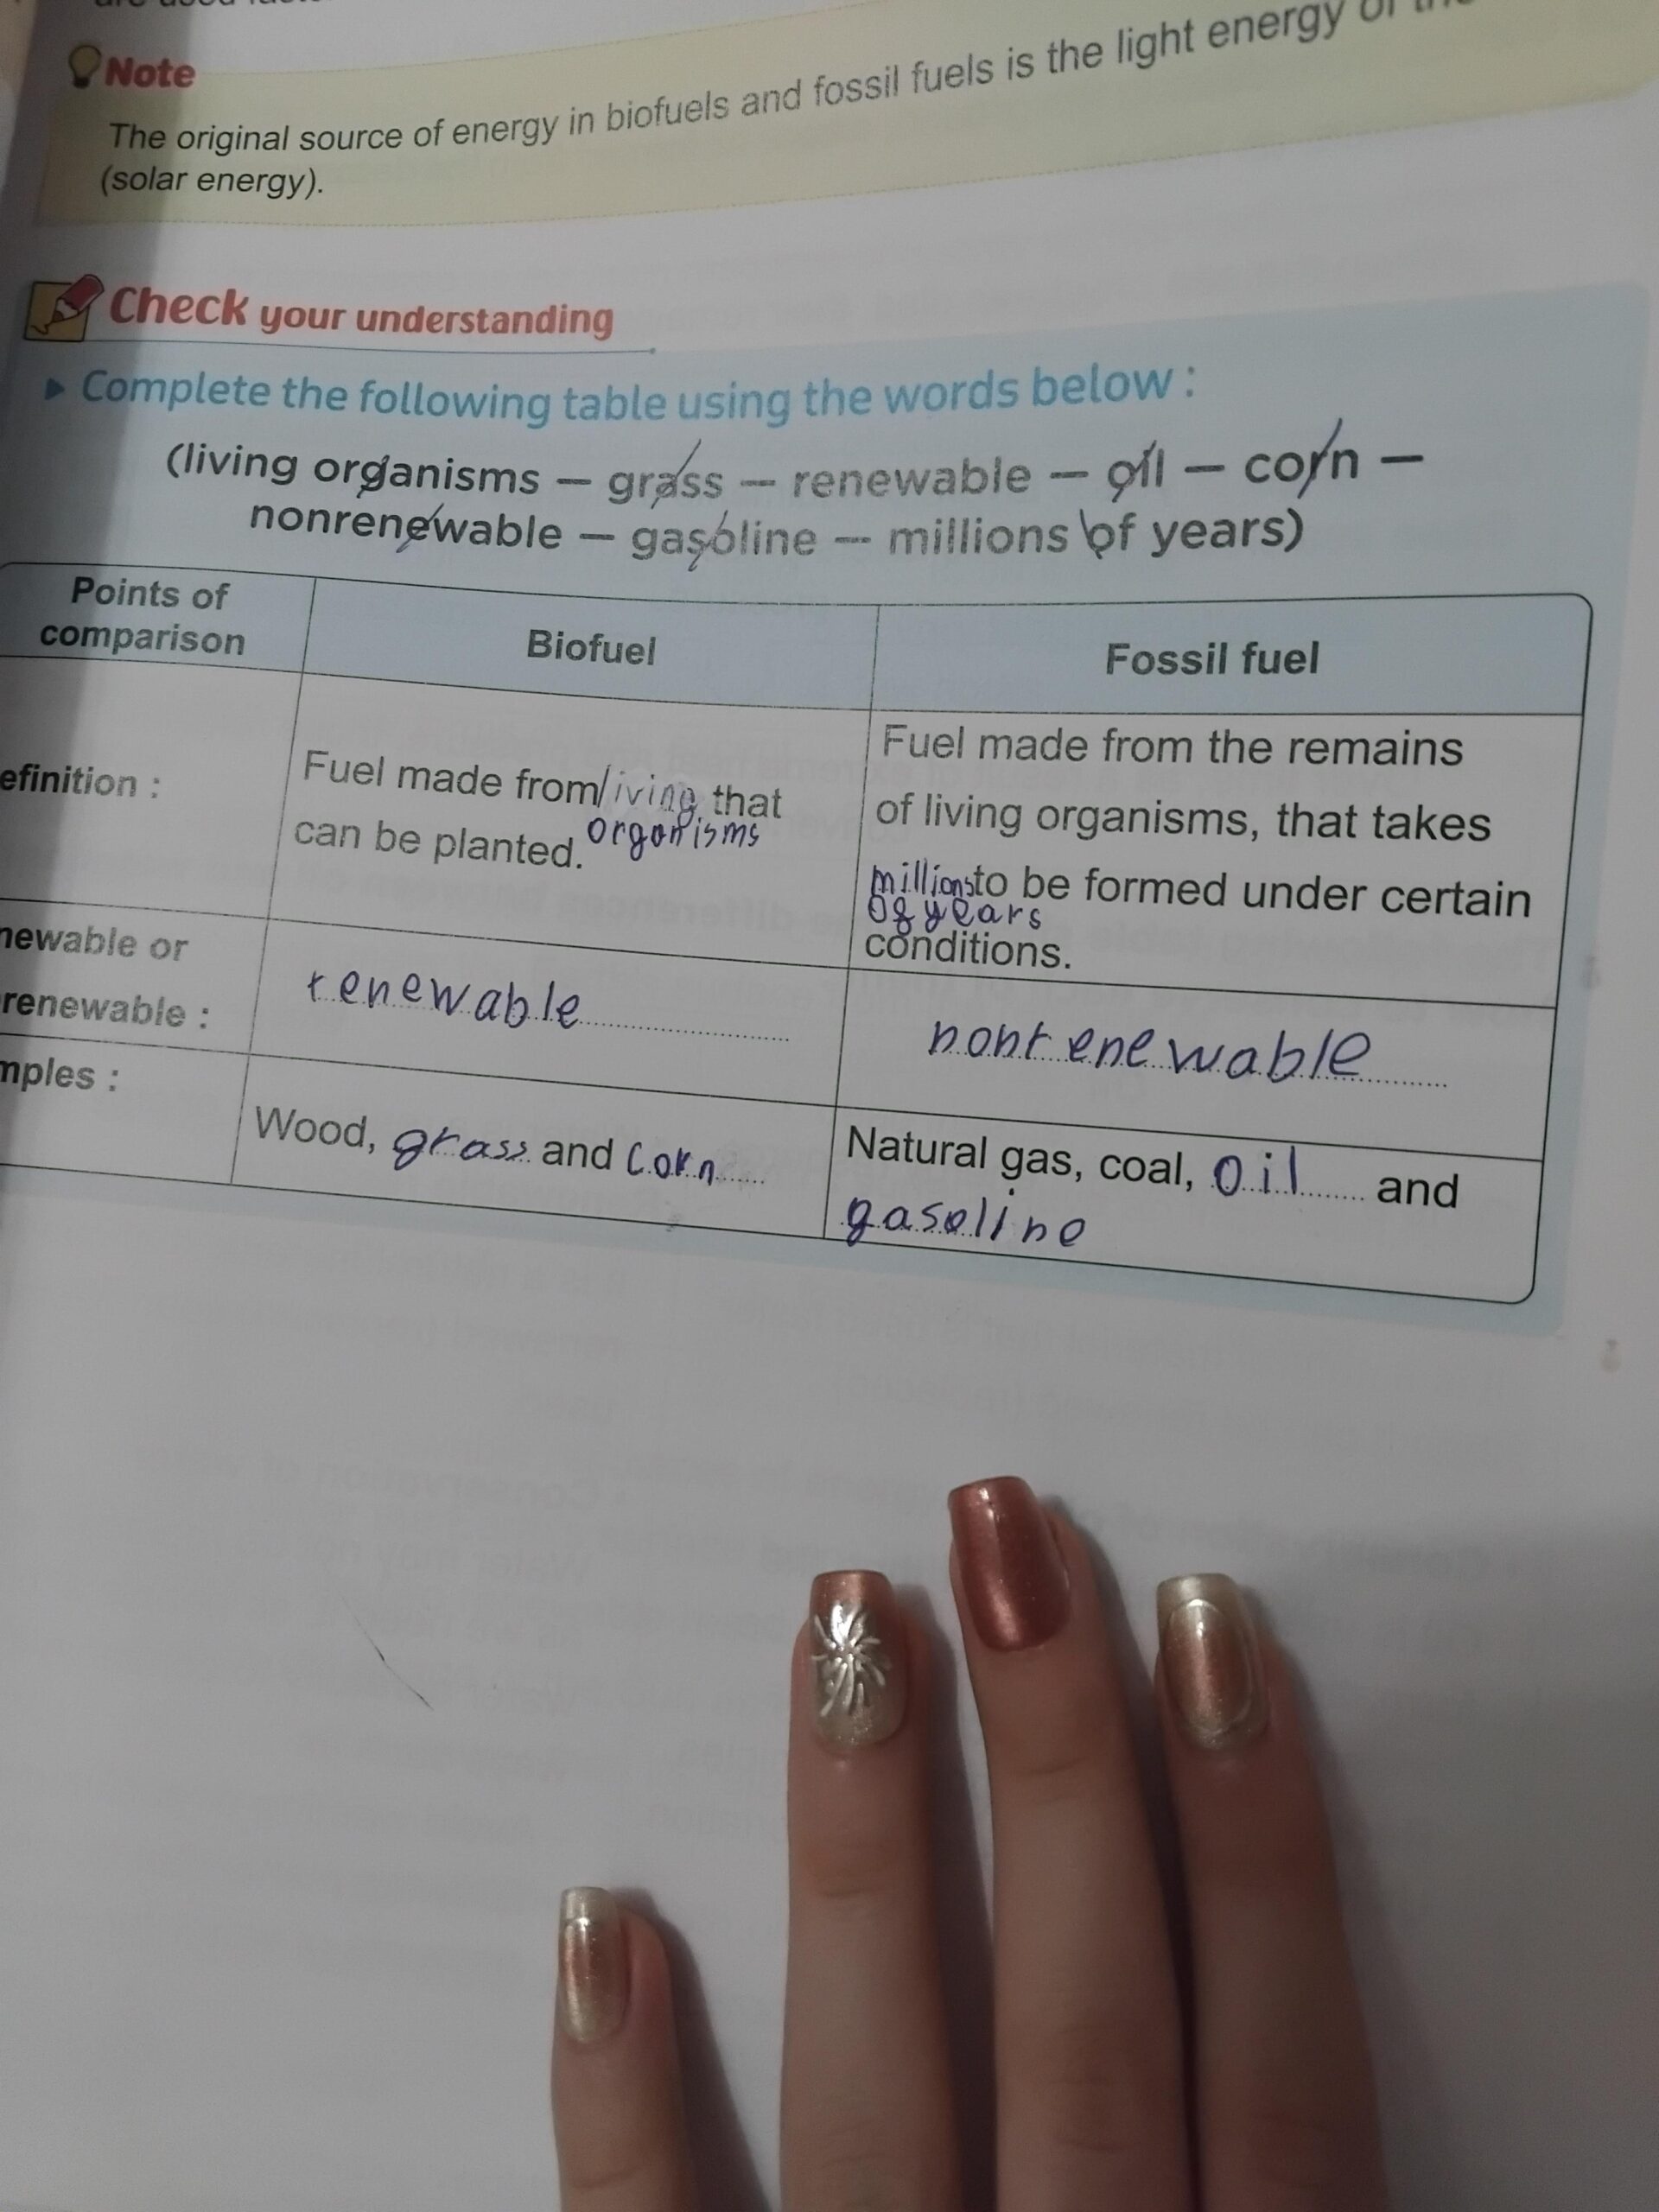 Note
The original source of energy in biofuels and fossil fuels is the light energy of
(solar energy).
Check your understanding
▸ Complete the following table using the words below :
(living organisms – grass – renewable – oil – corn –
nonrenewable – gasoline – millions of years)
Points of
comparison
Biofuel
Fossil fuel
efinition :
Fuel made from living that
organisms
can be planted.
Fuel made from the remains
of living organisms, that takes
millions to be formed under certain
of years
conditions.
newable or
renewable :
renewable
nonrenewable
mples :
Wood, grass and corn
Natural gas, coal, oil and
gasoline